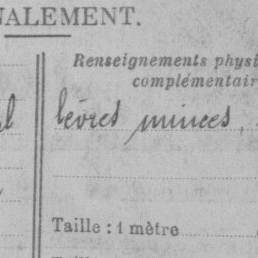 NALEMENT.
Renseignements physi
complémentair
lèvres minces,
Taille : 1 mètre